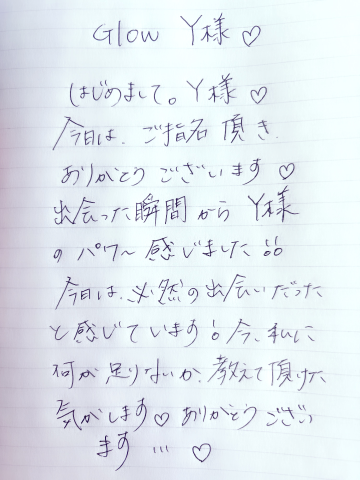 Glow Y様♡
はじめまして。Y様♡
今日は、ご指名頂き、
ありがとうございます♡
出会った瞬間からY様
のパワー感じました!!
今日は、必然の出会いだった
と感じています!今、私に
何が足りないか、教えて頂けた
気がします♡ありがとうござい
ます…♡